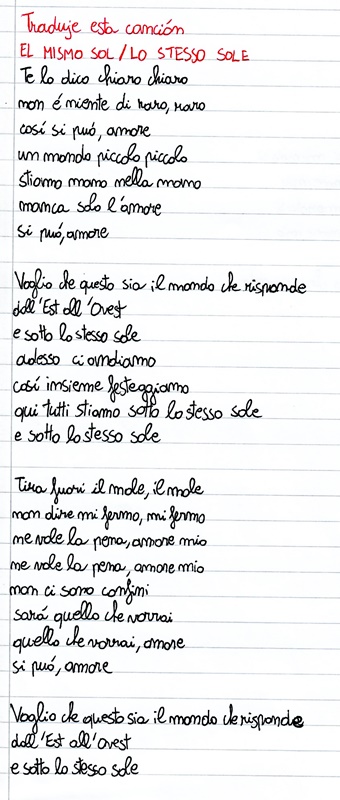 Traduje esta canción
EL MISMO SOL / LO STESSO SOLE
Te lo dico chiaro chiaro
non é niente di raro, raro
cosí si puó, amore
un mondo piccolo piccolo
stiamo mano nella mano
manca solo l'amore
si puó, amore
Voglio che questo sia il mondo che risponde
dall'Est all'Ovest
e sotto lo stesso sole
adesso ci andiamo
cosí insieme festeggiamo
qui tutti stiamo sotto lo stesso sole
e sotto lo stesso sole
Tira fuori il male, il male
non dire mi fermo, mi fermo
ne vale la pena, amore mio
ne vale la pena, amore mio
non ci sono confini
sará quello che vorrai
quello che vorrai, amore
si puó, amore
Voglio che questo sia il mondo che risponde
dall'Est all'Ovest
e sotto lo stesso sole